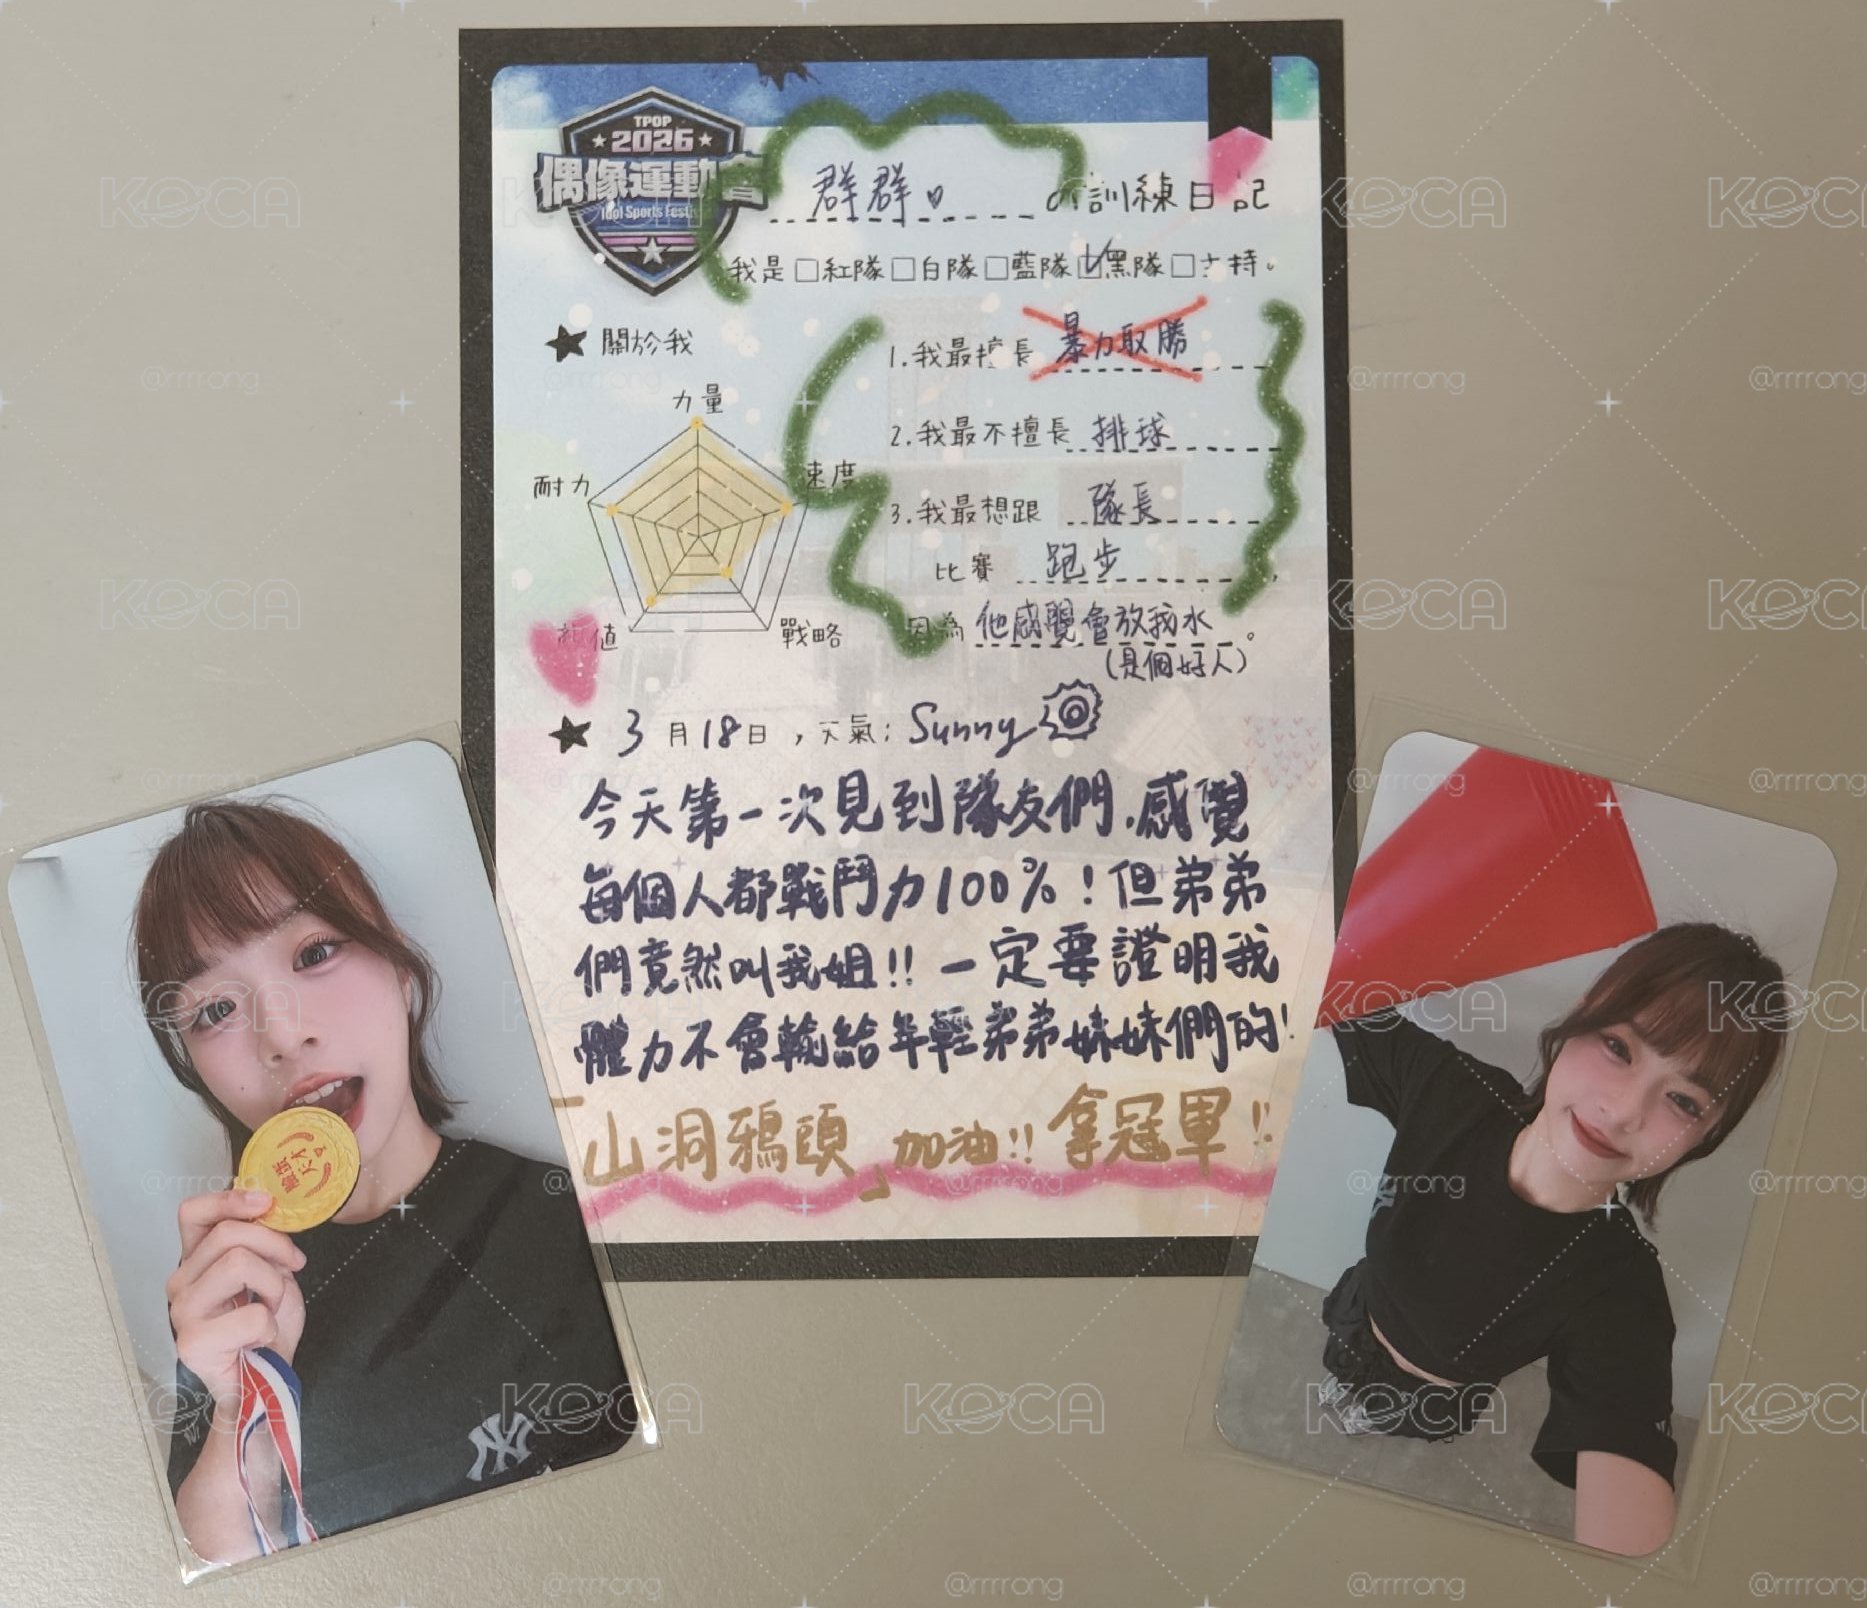 TPOP
2026
偶像運動會
Idol Sports Festi
群群 の訓練日記
我是□紅隊□白隊□藍隊☑黑隊□主持。
★ 關於我
力量
速度
耐力
戰略
值
1.我最擅長 暴力取勝
2.我最不擅長 排球
3.我最想跟 隊長
比賽 跑步,
因為 他感覺會放我水。
(是個好人)
★ 3月18日,天氣:Sunny
今天第一次見到隊友們,感覺
每個人都戰鬥力100%!但弟弟
們竟然叫我姐!!一定要證明我
體力不會輸給年輕弟弟妹妹們的!
「山洞鴉頭」加油!!拿冠軍!!
NY
KOCA
@rrrrong